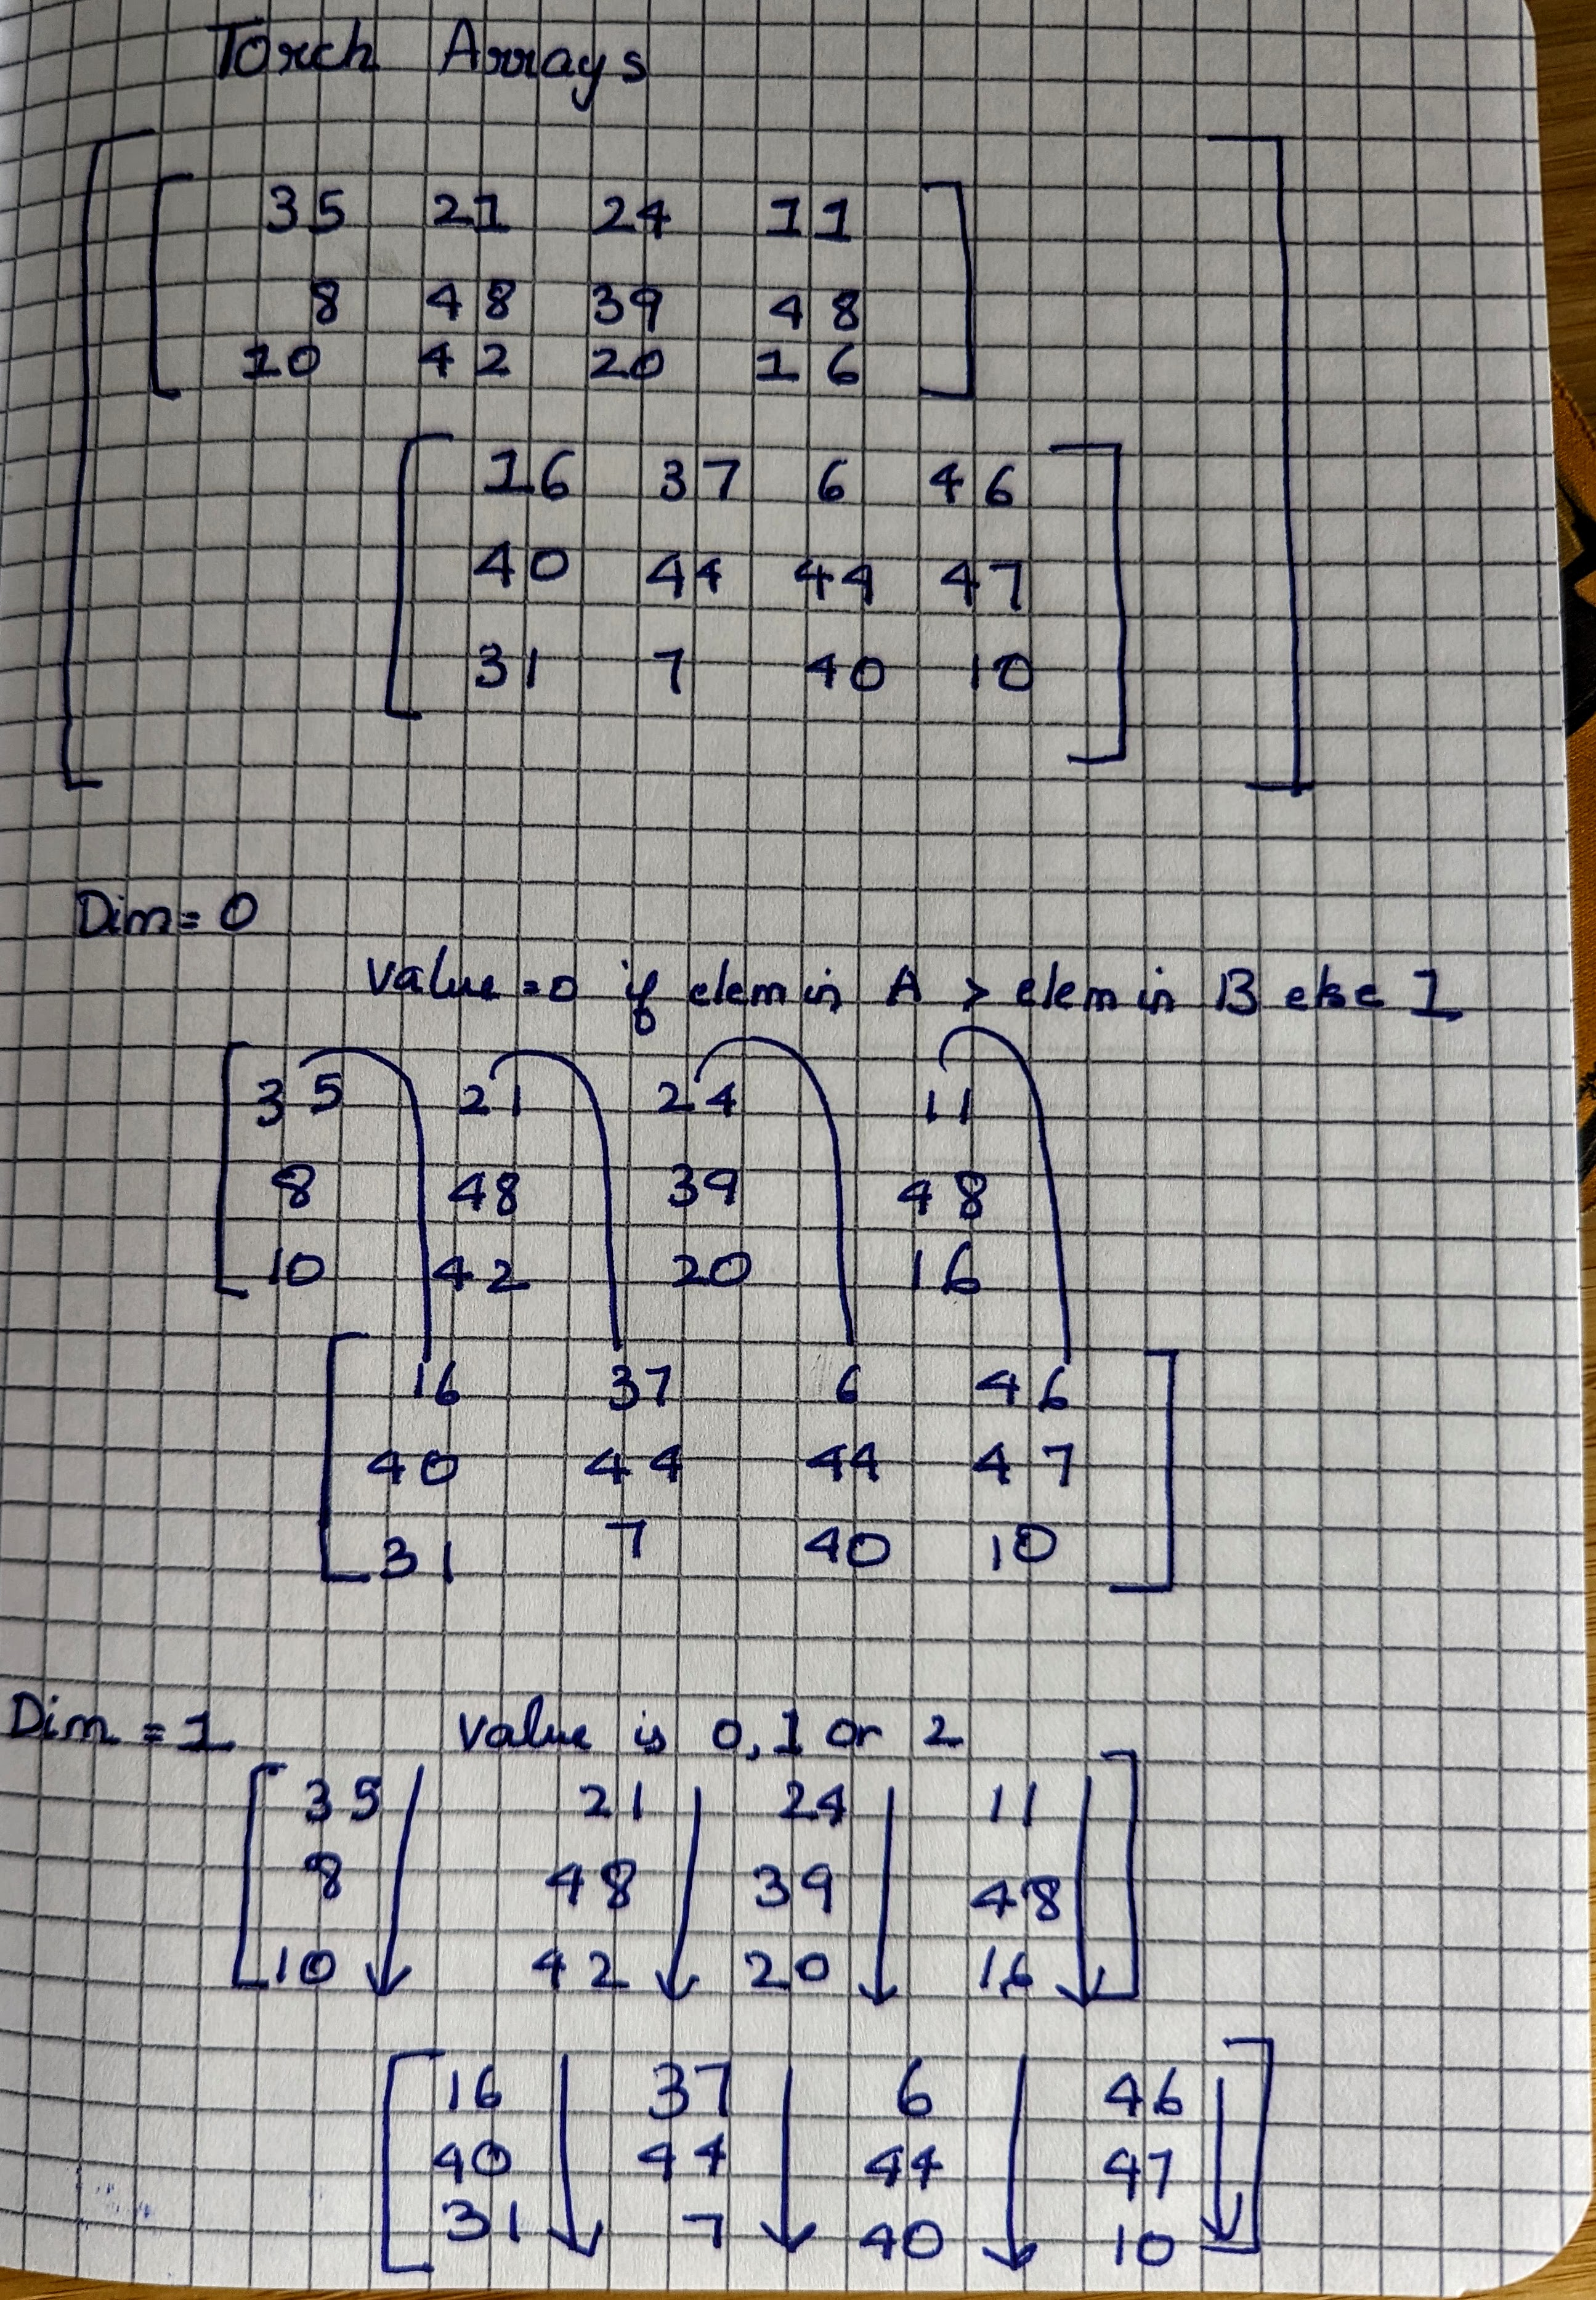 Torch Arrays
35 21 24 11
8 48 39 48
10 42 20 16
16 37 6 46
40 44 44 47
31 7 40 10
Dim = 0
Value = 0 if elem in A > elem in B else 1
35 21 24 11
8 48 39 48
10 42 20 16
16 37 6 46
40 44 44 47
31 7 40 10
Dim = 1 Value is 0, 1 or 2
35 21 24 11
8 48 39 48
10 42 20 16
16 37 6 46
40 44 44 47
31 7 40 10